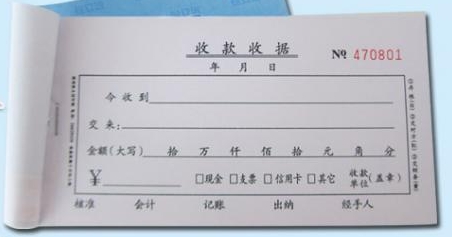 收款收据
№ 470801
年 月 日
今收到
交来:
金额(大写) 拾 万 仟 佰 拾 元 角 分
¥ □现金 □支票 □信用卡 □其它 收款单位(盖章)
核准 会计 记账 出纳 经手人